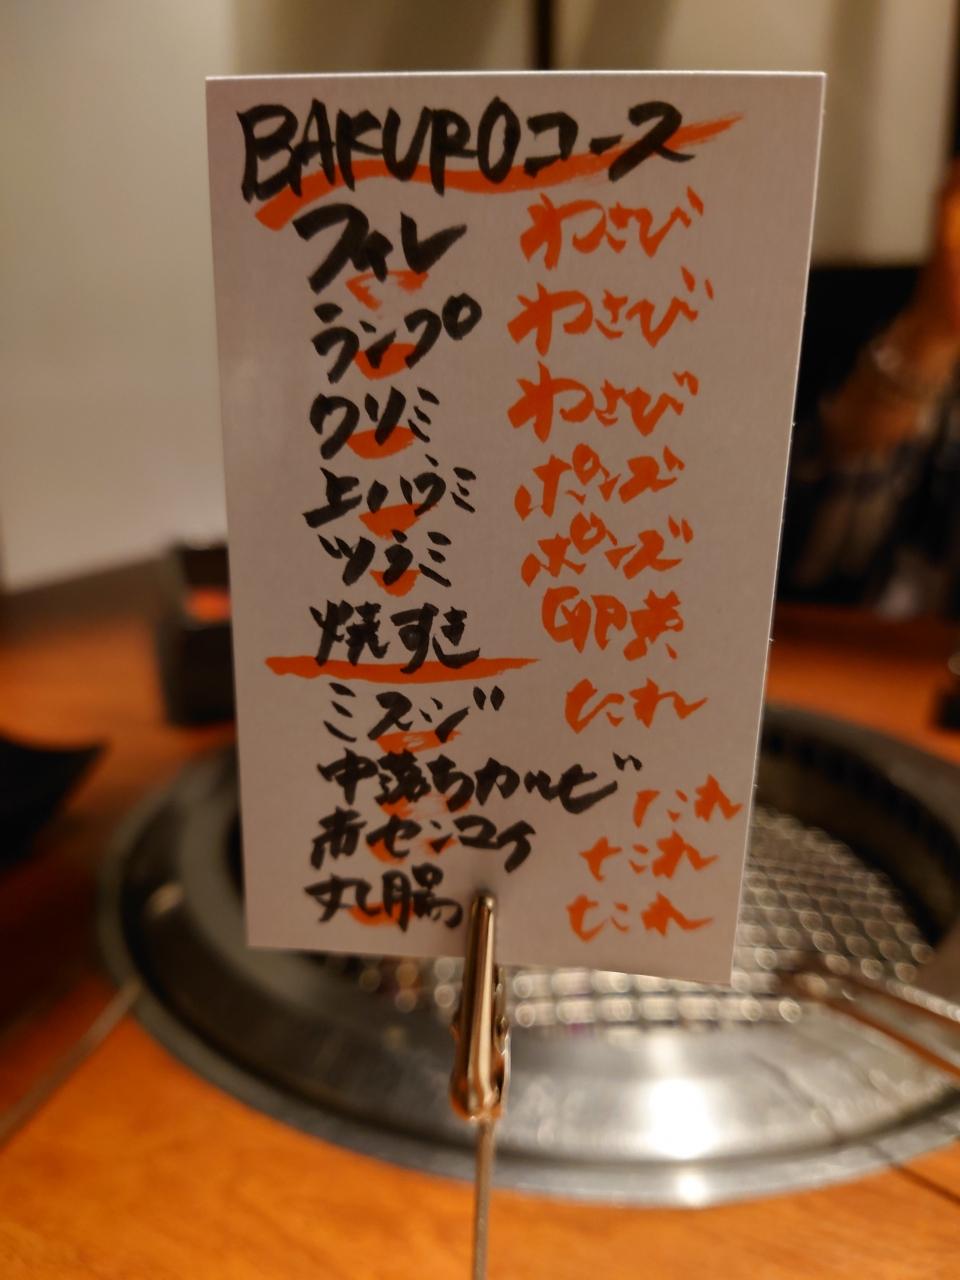 BAKUROコース
フィレ わさび
ランプ わさび
クリミ わさび
上ハラミ ポンズ
ツラミ ポンズ
焼すき 卵黄
ミスジ たれ
中落ちカルビ たれ
赤センコイ たれ
丸腸 たれ